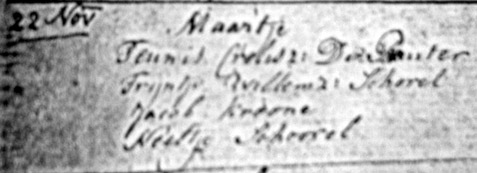 22 Nov Maartje
Teunis Crelisz: De Ruiter
Trijntje Willemz: Schorel
Jacob Kroone
Neeltje Schoorel